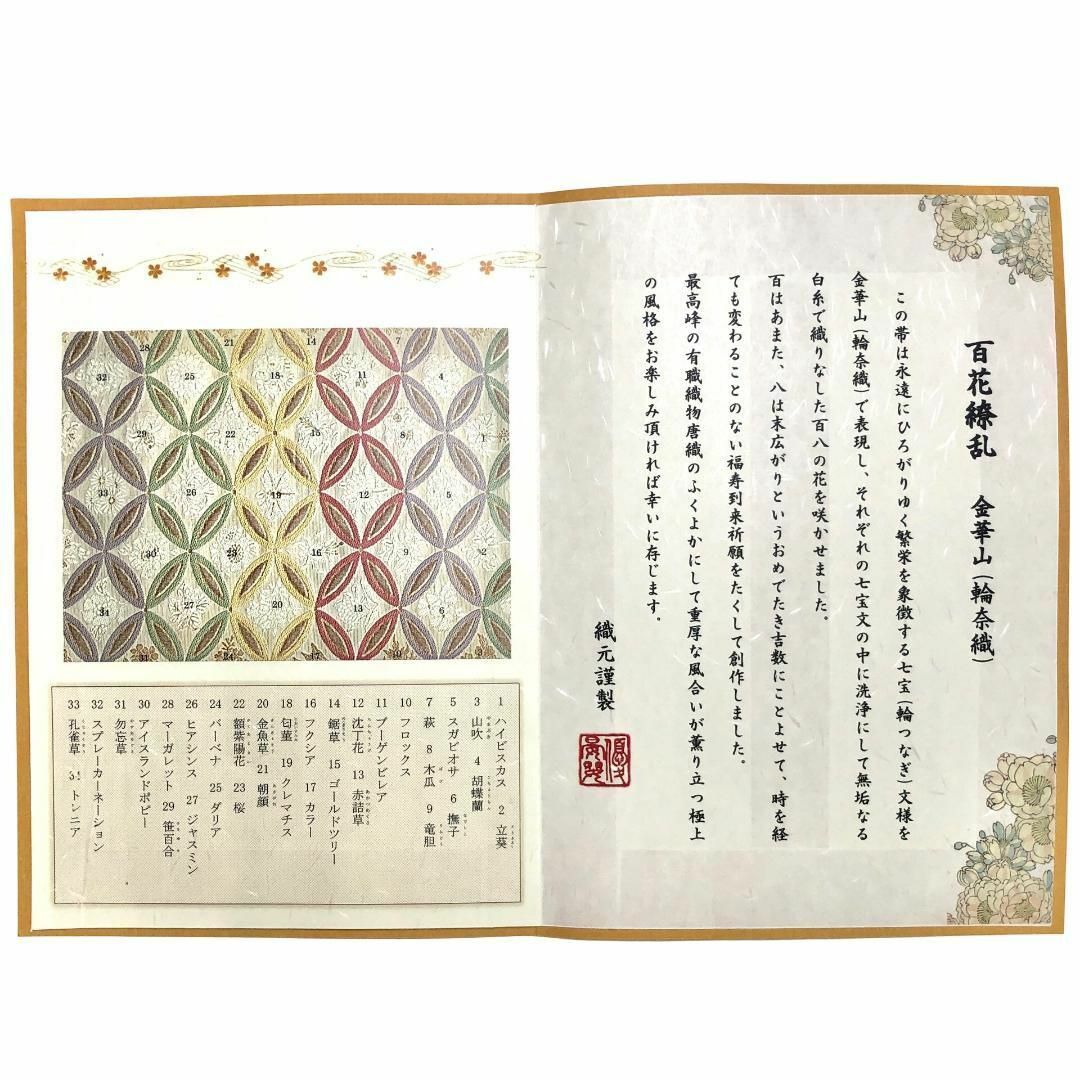 百花繚乱　金華山（輪奈織）
この帯は永遠にひろがりゆく繁栄を象徴する七宝（輪つなぎ）文様を
金華山（輪奈織）で表現し、それぞれの七宝文の中に洗浄にして無垢なる
白糸で織りなした百八の花を咲かせました。
百はあまた、八は末広がりというおめでたき吉数にことよせて、時を経
ても変わることのない福寿到来祈願をたくして創作しました。
最高峰の有職織物唐織のふくよかにして重厚な風合いが薫り立つ極上
の風格をお楽しみ頂ければ幸いに存じます。
織元謹製
1 ハイビスカス 2 立葵
3 山吹 4 胡蝶蘭
5 スガビオサ 6 撫子
7 萩 8 木瓜 9 竜胆
10 フロックス
11 ブーゲンビレア
12 沈丁花 13 赤詰草
14 鋸草 15 ゴールドツリー
16 フクシア 17 カラー
18 匂菫 19 クレマチス
20 金魚草 21 朝顔
22 額紫陽花 23 桜
24 バーベナ 25 ダリア
26 ヒアシンス 27 ジャスミン
28 マーガレット 29 笹百合
30 アイスランドポピー
31 勿忘草
32 スプレーカーネーション
33 孔雀草 34 トンニア